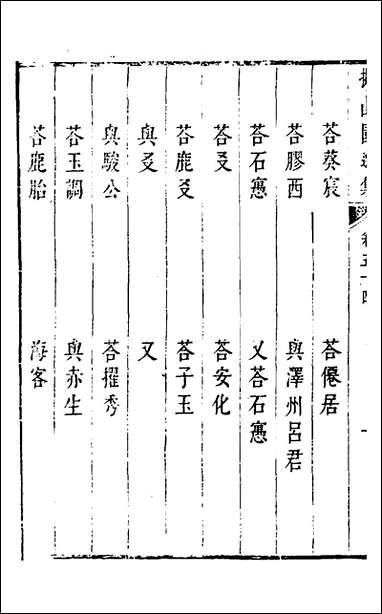 擬山園選集 卷五十四 一
荅葵宸 荅僊居
荅膠西 與澤州呂君
荅石愙 又荅石愙
荅㕛 荅安化
荅鹿㕛 荅子玉
與㕛 又
與駿公 荅擢秀
荅玉調 與赤生
荅鹿胎 海客